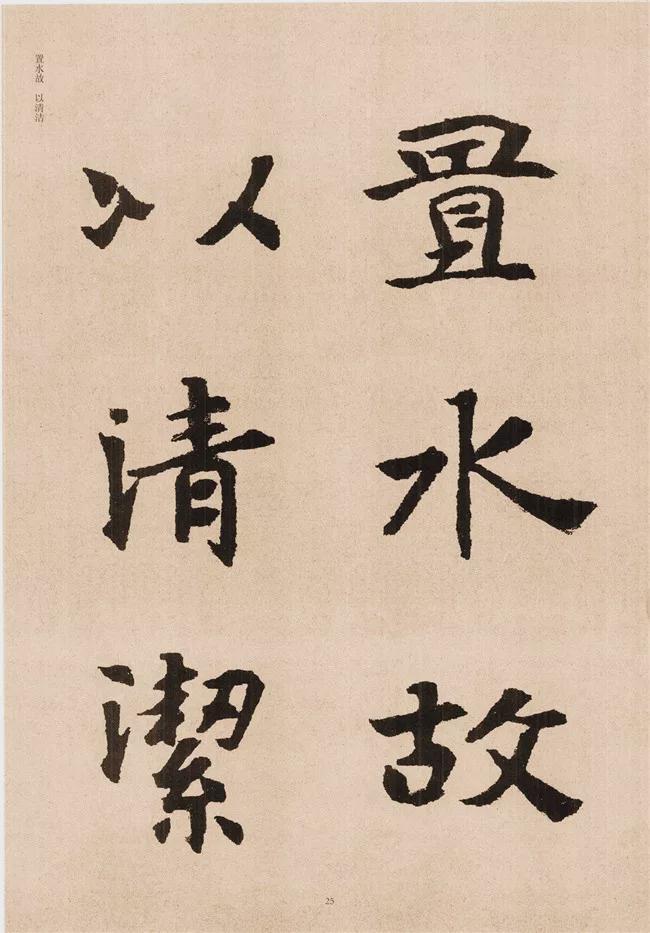 置水故
以清潔
置水故 以清洁
25